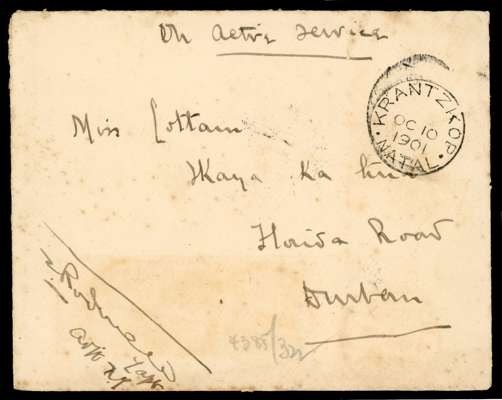 On Active Service
KRANTZKOP
OC 10
1901
NATAL
Miss Cottam
Ikaya Ka
Florida Road
Durban
4385/32